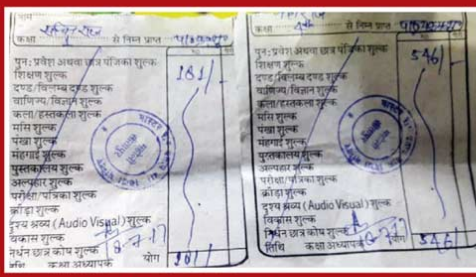 नाम
कक्षा से निम्न प्राप्त
पुनः प्रवेश अथवा छात्र पंजिका शुल्क
शिक्षण शुल्क 181/
दण्ड/विलम्ब दण्ड शुल्क
वाणिज्य/विज्ञान शुल्क
कला/हस्तकला शुल्क
मांस शुल्क
पंखा शुल्क
मंहगाई शुल्क
पुस्तकालय शुल्क
अल्पहार शुल्क
परीक्षा/पत्रिका शुल्क
क्रीड़ा शुल्क
दृश्य श्रव्य (Audio Visual) शुल्क
विकास शुल्क
निर्धन छात्र कोष शुल्क
तिथि कक्षा अध्यापक योग 181/
कक्षा 4th से निम्न प्राप्त
पुनः प्रवेश अथवा छात्र पंजिका शुल्क 546/
शिक्षण शुल्क
दण्ड/विलम्ब दण्ड शुल्क
वाणिज्य/विज्ञान शुल्क
कला/हस्तकला शुल्क
मांस शुल्क
पंखा शुल्क
मंहगाई शुल्क
पुस्तकालय शुल्क
अल्पहार शुल्क
परीक्षा/पत्रिका शुल्क
क्रीड़ा शुल्क
दृश्य श्रव्य (Audio Visual) शुल्क
विकास शुल्क
निर्धन छात्र कोष शुल्क
तिथि कक्षा अध्यापक योग 546/